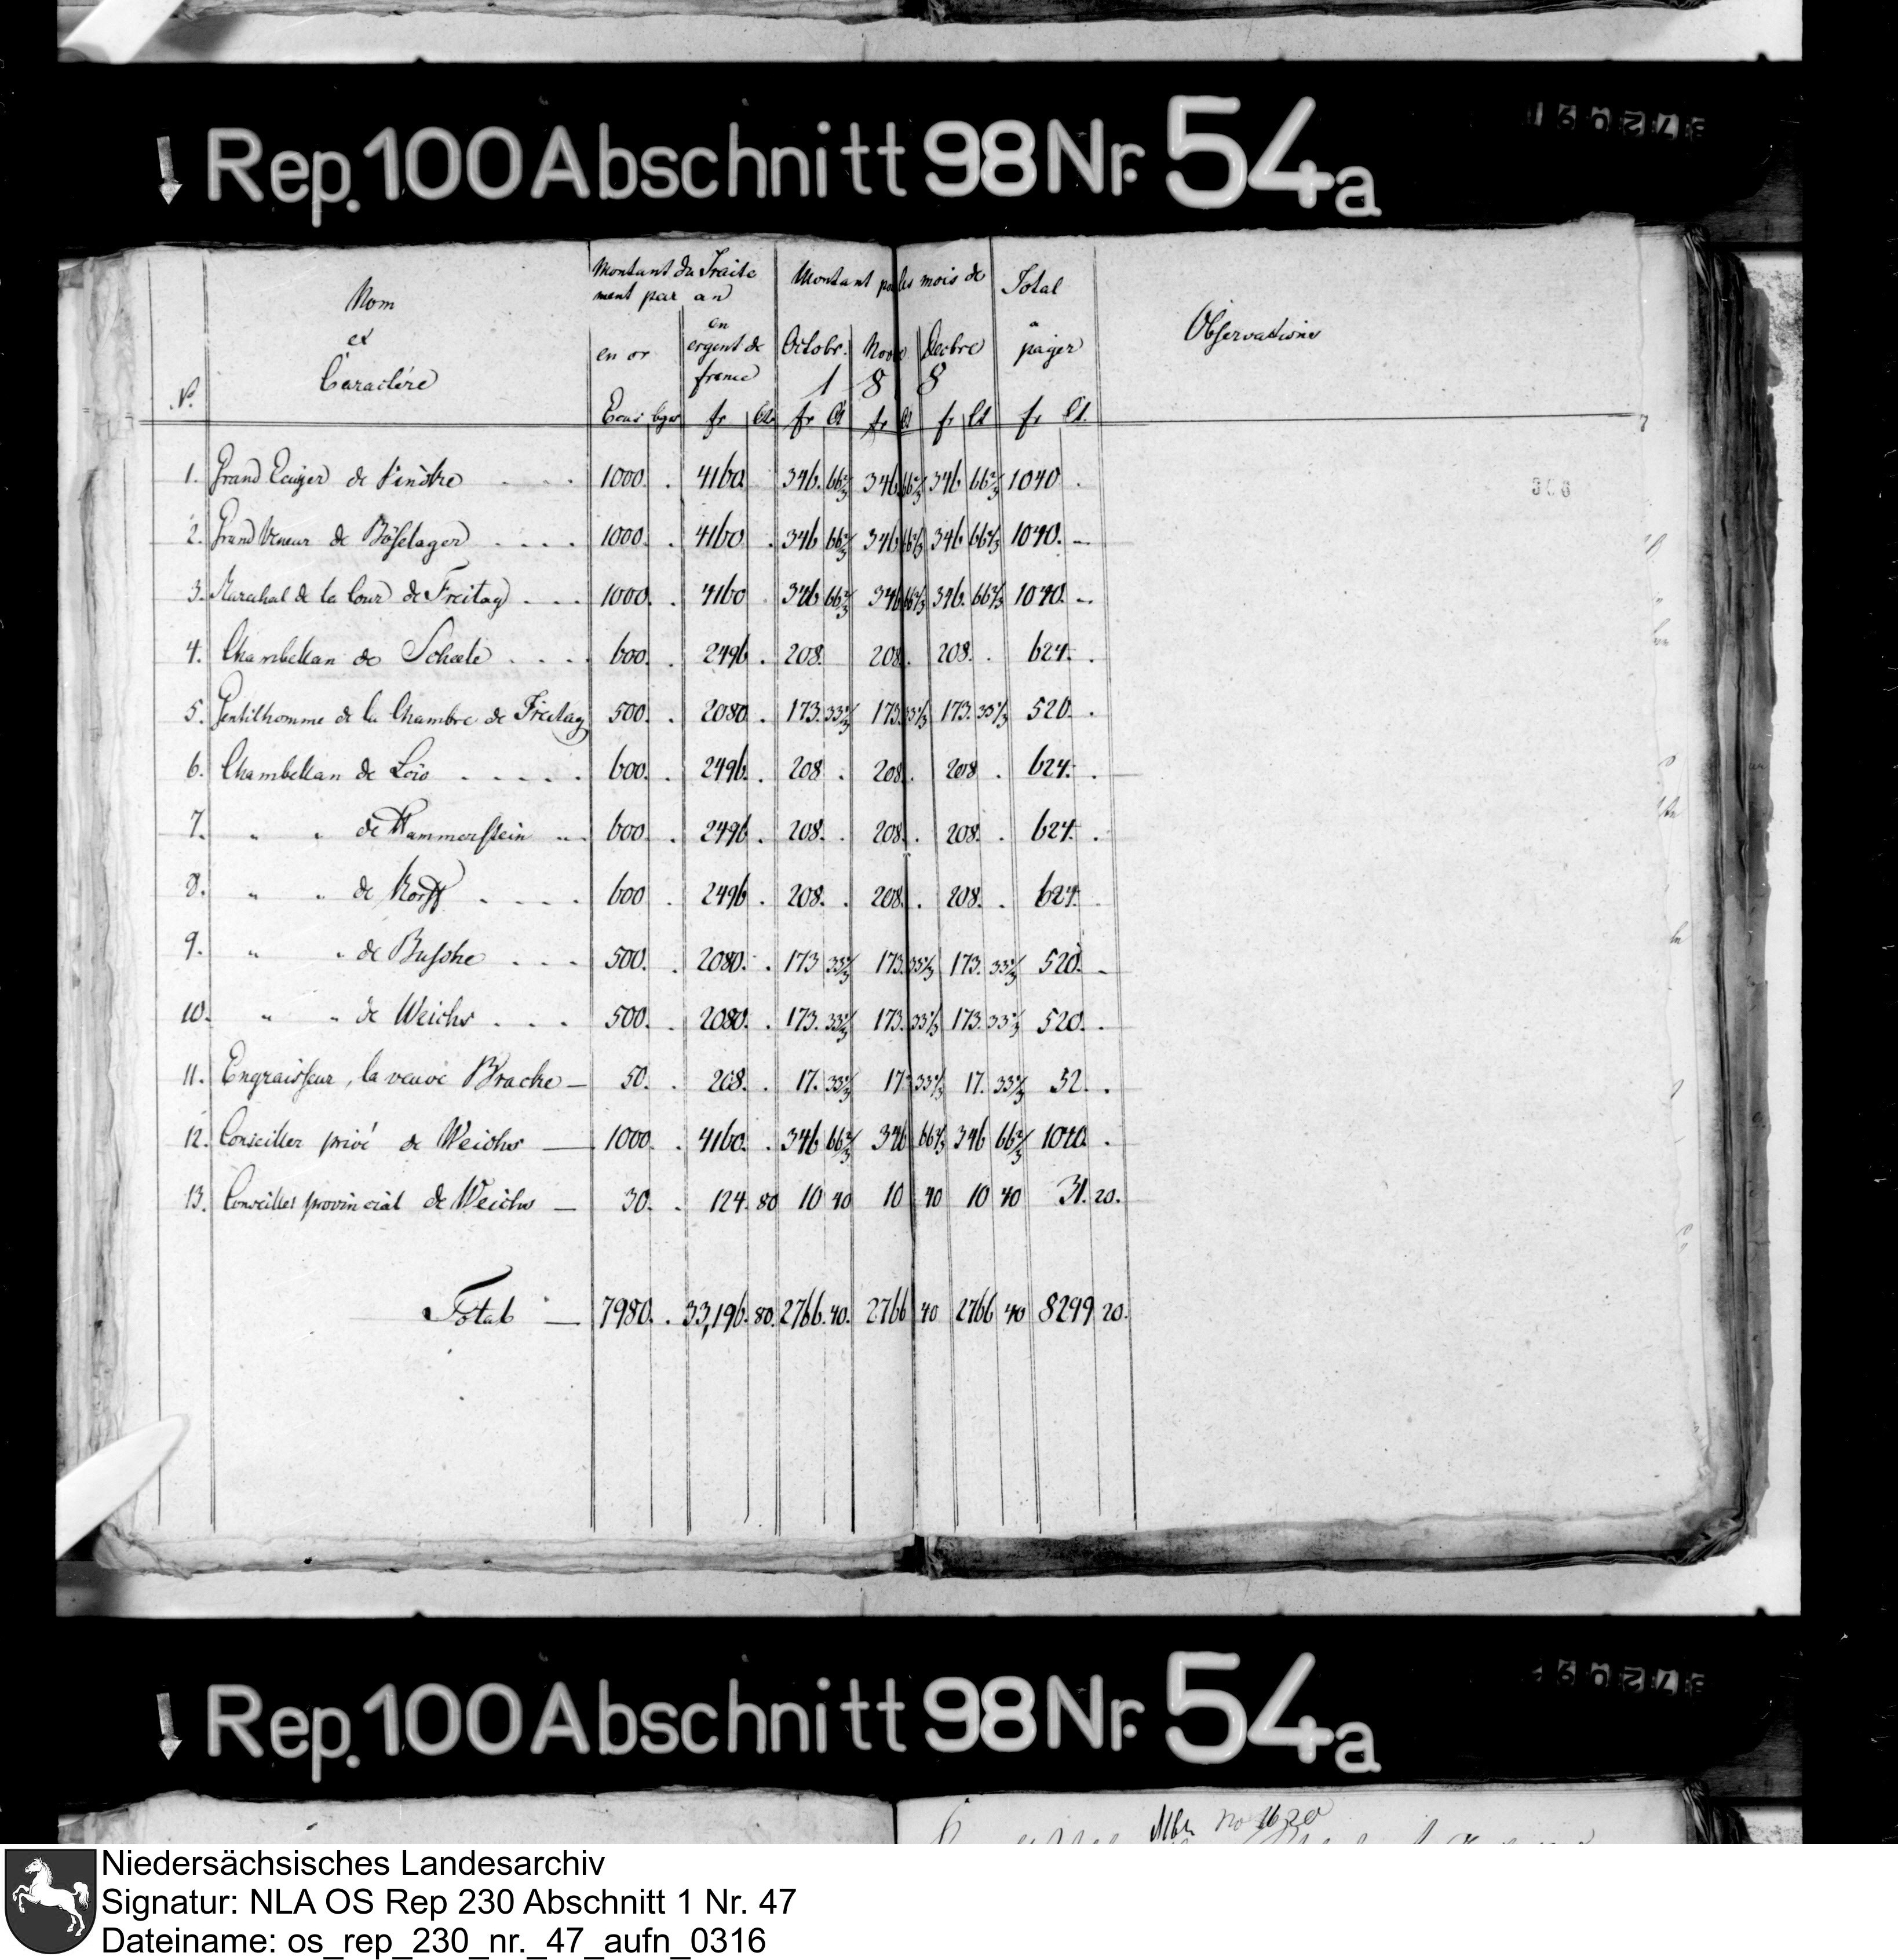 372091
Rep. 100 Abschnitt 98 Nr. 54a
Montant du Traitement par an | Montant par les mois de | Total
Nom et Caractère | en or | en argent de france | Octobr. | Novbre | Decbre | à payer | Observations
1 8 8
No. | Ecus | bgr | fr | Cts | fr | Ct | fr | Ct | fr | Ct | fr | Ct.
1. Grand Ecuijer de Vincke . . . 1000. . 4160 346. 66⅔ 346 66⅔ 346 66⅔ 1040 .
306
2. Grand Veneur de Böselager . . . . 1000. . 4160 . 346 66⅔ 346 66⅔ 346 66⅔ 1040. -
3. Marechal de la Cour de Freitag . . . 1000. . 4160 . 346 66⅔ 346 66⅔ 346. 66⅔ 1040. -
4. Chambellan de Schele . . . . 600. . 2496 . 208. 208. 208. . 624. .
5. Gentilhomme de la Chambre de Freitag 500. . 2080 . 173. 33⅓ 173. 33⅓ 173. 33⅓ 520. .
6. Chambellan de Loïo . . . . . 600. . 2496. . 208 . 208. 208 . 624. .
7. " " de Hammerstein .. 600. . 2496 . 208. . 208. . 208. . 624. .
8. " " de Korff . . . . 600 . 2496 . 208. . 208. . 208. . 624.
9. " " de Bussche . . . 500. . 2080. . 173 33⅓ 173. 33⅓ 173. 33⅓ 520. .
10. " " de Weichs . . . 500. . 2080. . 173. 33⅓ 173. 33⅓ 173. 33⅓ 520. .
11. Engraisseur, la veuve Bracke — 50. . 208. . 17. 33⅓ 17 33⅓ 17. 33⅓ 52. .
12. Conseiller privé de Weichs — 1000. . 4160. . 346 66⅔ 346 66⅔ 346 66⅔ 1040. .
13. Conseiller provincial de Weichs — 30. . 124. 80 10 40 10 40 10 40 31. 20.
Total — 7980. . 33,196. 80. 2766. 40. 2766 40 2766 40 8299 20.
Rep. 100 Abschnitt 98 Nr. 54a
No 1620
Niedersächsisches Landesarchiv
Signatur: NLA OS Rep 230 Abschnitt 1 Nr. 47
Dateiname: os_rep_230_nr._47_aufn_0316